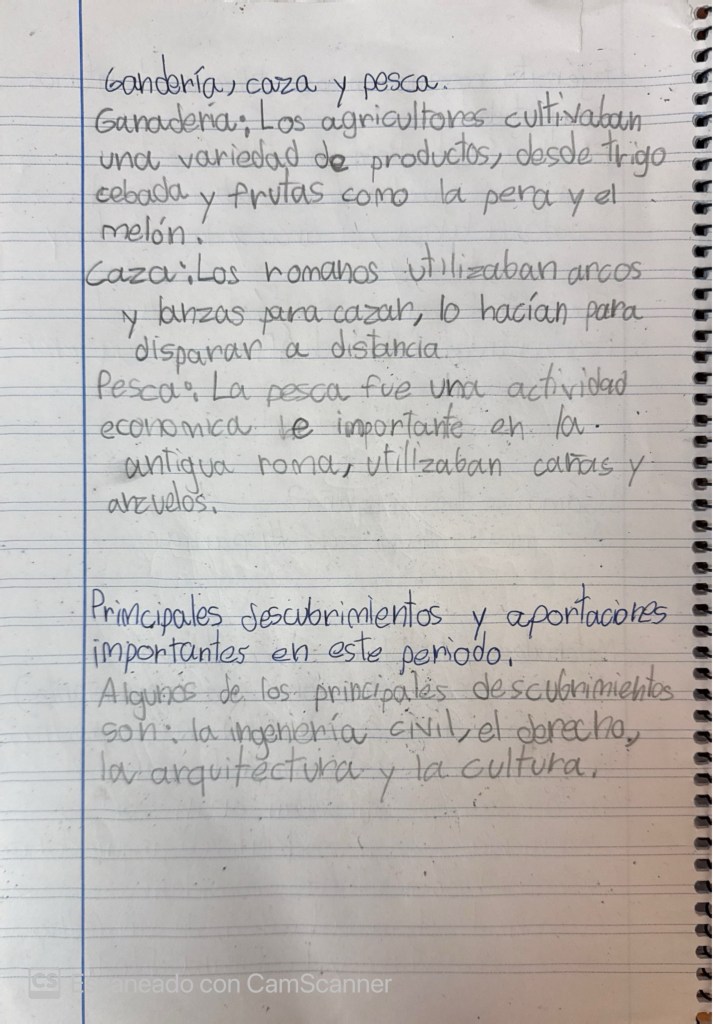 Gandería, caza y pesca.
Ganadería: Los agricultores cultivaban
una variedad de productos, desde trigo
cebada y frutas como la pera y el
melón.
Caza: Los romanos utilizaban arcos
y lanzas para cazar, lo hacían para
disparar a distancia
Pesca: La pesca fue una actividad
economica e importante en la
antigua roma, utilizaban cañas y
anzuelos.
Principales descubrimientos y aportaciones
importantes en este periodo.
Algunos de los principales descubrimientos
son: la ingeniería civil, el derecho,
la arquitectura y la cultura.
CS Escaneado con CamScanner